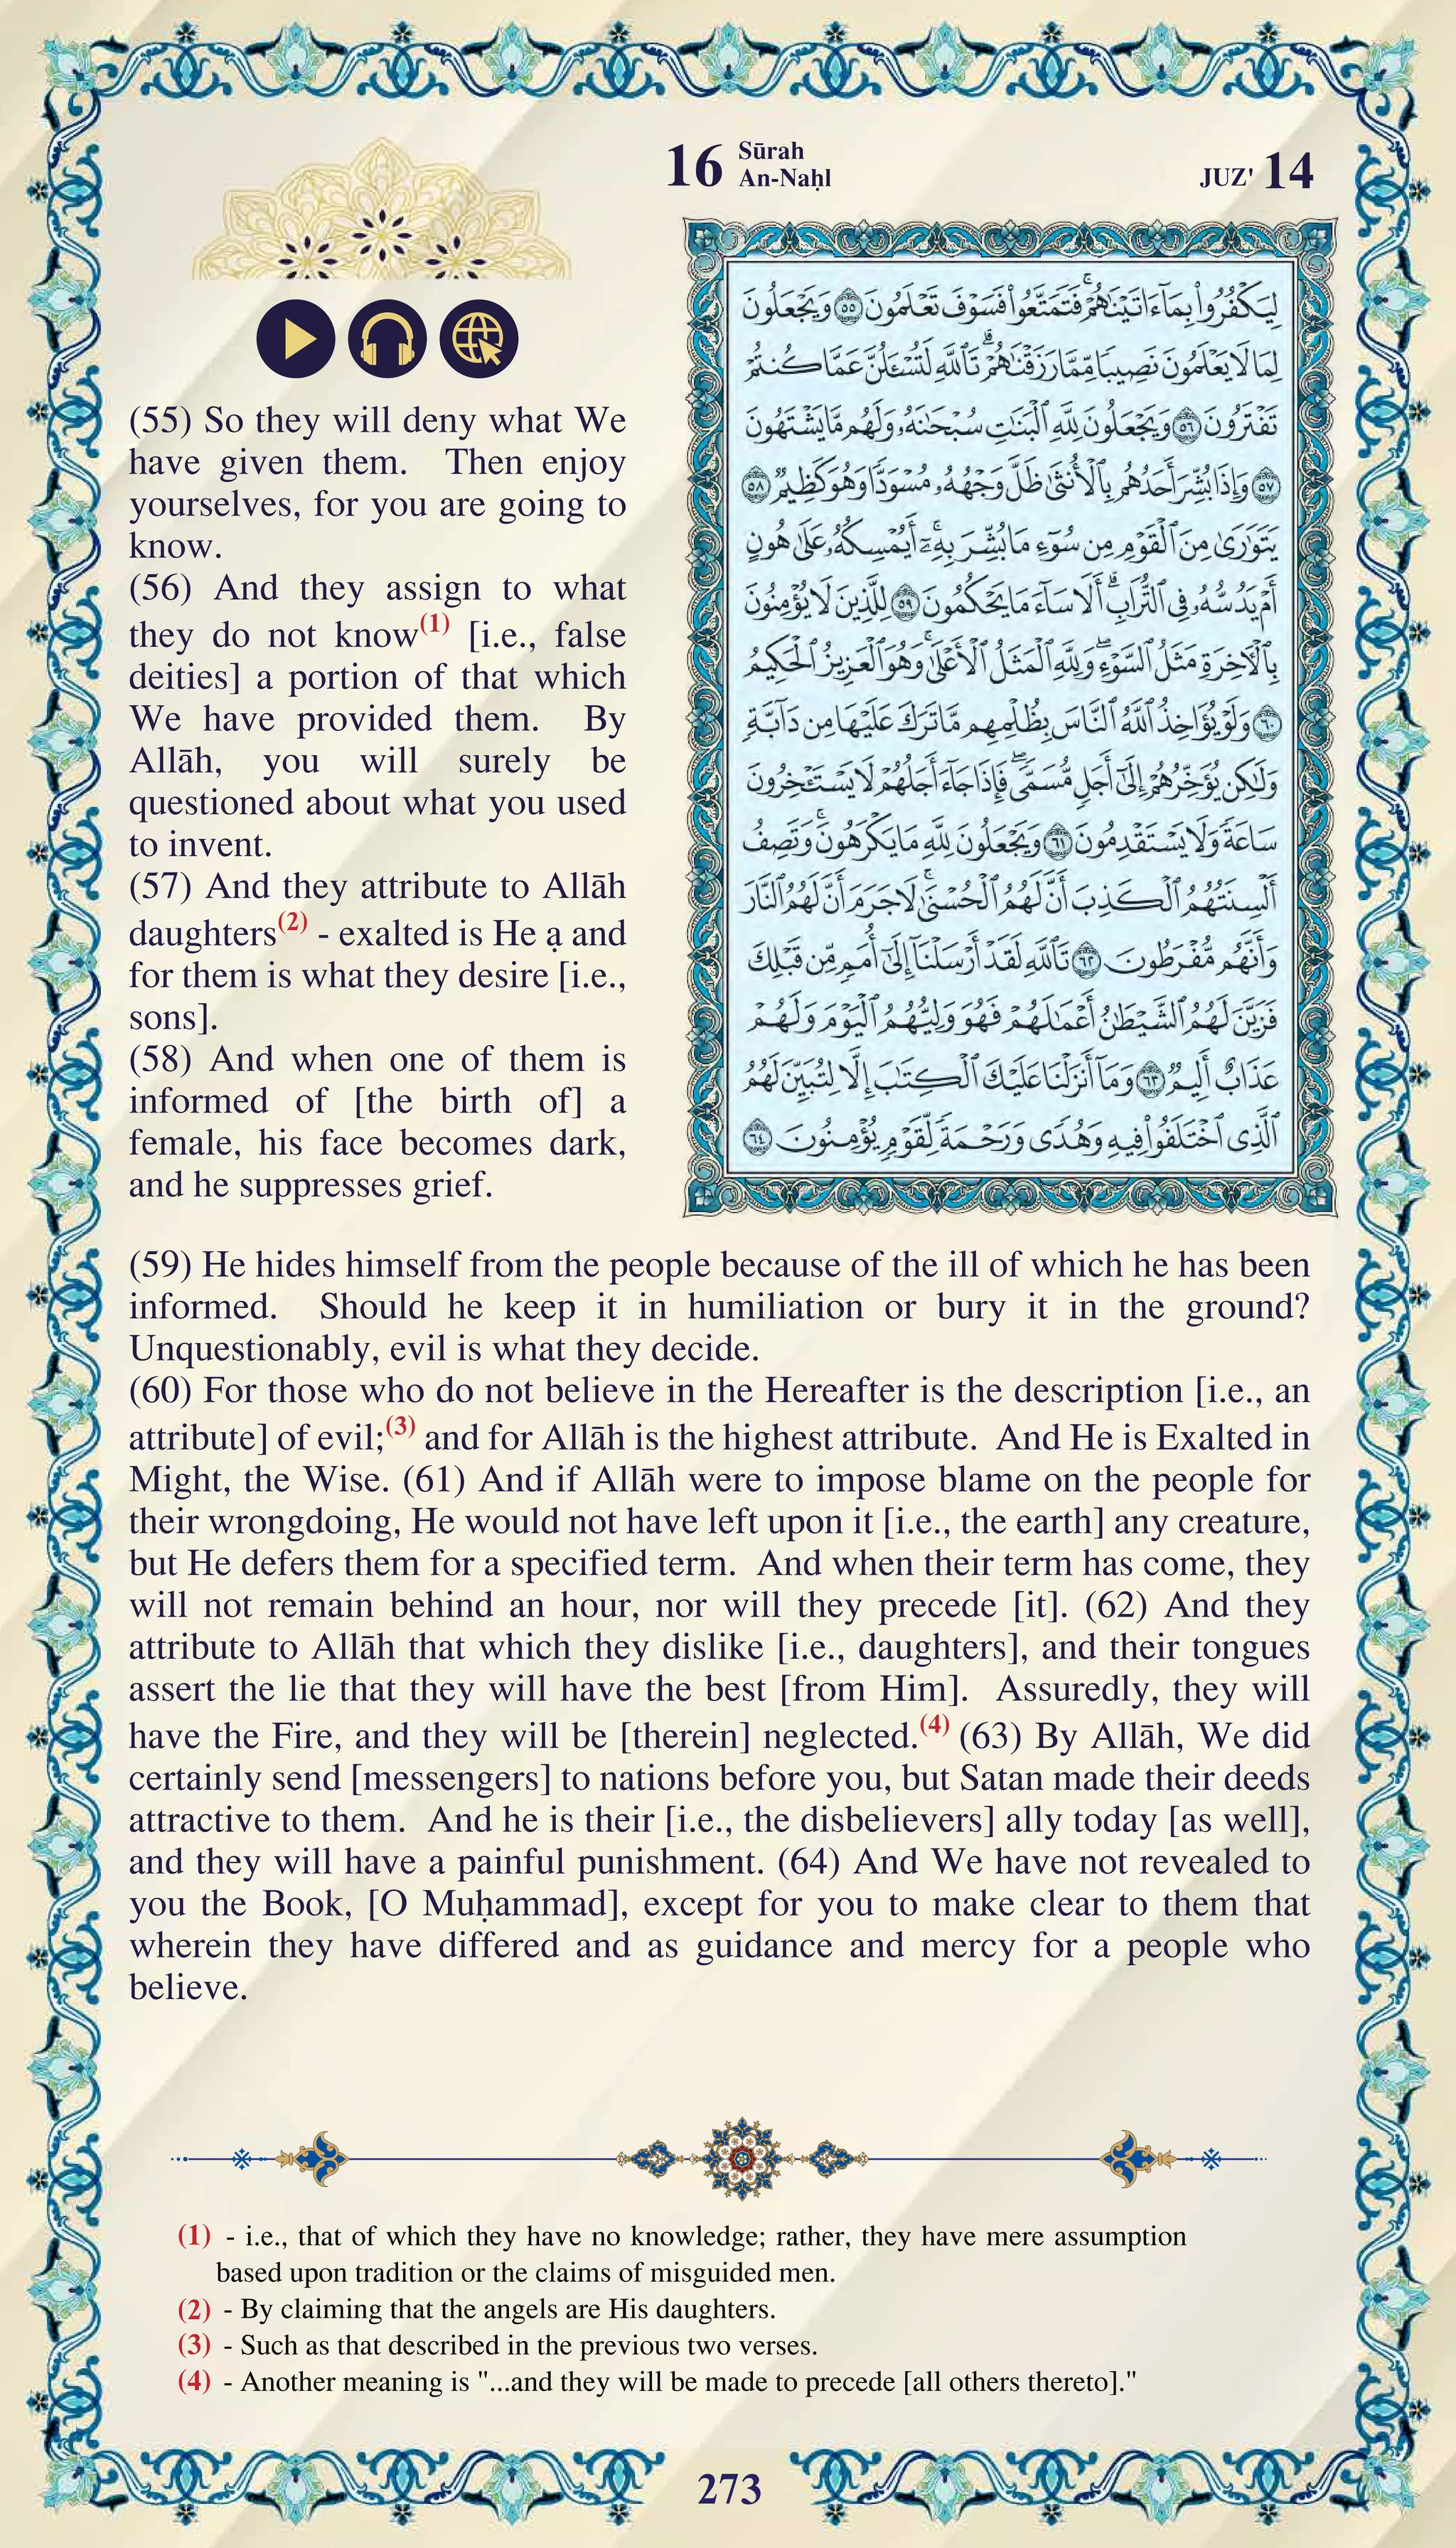 16 Sūrah
An-Naḥl
JUZ' 14
لِيَكْفُرُوا۟ بِمَآ ءَاتَيْنَـٰهُمْ ۚ فَتَمَتَّعُوا۟ فَسَوْفَ تَعْلَمُونَ ٥٥ وَيَجْعَلُونَ
لِمَا لَا يَعْلَمُونَ نَصِيبًا مِّمَّا رَزَقْنَـٰهُمْ ۗ تَٱللَّهِ لَتُسْـَٔلُنَّ عَمَّا كُنتُمْ
تَفْتَرُونَ ٥٦ وَيَجْعَلُونَ لِلَّهِ ٱلْبَنَـٰتِ سُبْحَـٰنَهُۥ وَلَهُم مَّا يَشْتَهُونَ
٥٧ وَإِذَا بُشِّرَ أَحَدُهُم بِٱلْأُنثَىٰ ظَلَّ وَجْهُهُۥ مُسْوَدًّا وَهُوَ كَظِيمٌ ٥٨
يَتَوَٰرَىٰ مِنَ ٱلْقَوْمِ مِن سُوٓءِ مَا بُشِّرَ بِهِۦٓ ۚ أَيُمْسِكُهُۥ عَلَىٰ هُونٍ
أَمْ يَدُسُّهُۥ فِى ٱلتُّرَابِ ۗ أَلَا سَآءَ مَا يَحْكُمُونَ ٥٩ لِلَّذِينَ لَا يُؤْمِنُونَ
بِٱلْـَٔاخِرَةِ مَثَلُ ٱلسَّوْءِ ۖ وَلِلَّهِ ٱلْمَثَلُ ٱلْأَعْلَىٰ ۚ وَهُوَ ٱلْعَزِيزُ ٱلْحَكِيمُ
٦٠ وَلَوْ يُؤَاخِذُ ٱللَّهُ ٱلنَّاسَ بِظُلْمِهِم مَّا تَرَكَ عَلَيْهَا مِن دَآبَّةٍ
وَلَـٰكِن يُؤَخِّرُهُمْ إِلَىٰٓ أَجَلٍ مُّسَمًّى ۖ فَإِذَا جَآءَ أَجَلُهُمْ لَا يَسْتَـْٔخِرُونَ
سَاعَةً وَلَا يَسْتَقْدِمُونَ ٦١ وَيَجْعَلُونَ لِلَّهِ مَا يَكْرَهُونَ ۚ وَتَصِفُ
أَلْسِنَتُهُمُ ٱلْكَذِبَ أَنَّ لَهُمُ ٱلْحُسْنَىٰ ۚ لَا جَرَمَ أَنَّ لَهُمُ ٱلنَّارَ
وَأَنَّهُم مُّفْرَطُونَ ٦٢ تَٱللَّهِ لَقَدْ أَرْسَلْنَآ إِلَىٰٓ أُمَمٍ مِّن قَبْلِكَ
فَزَيَّنَ لَهُمُ ٱلشَّيْطَـٰنُ أَعْمَـٰلَهُمْ فَهُوَ وَلِيُّهُمُ ٱلْيَوْمَ وَلَهُمْ
عَذَابٌ أَلِيمٌ ٦٣ وَمَآ أَنزَلْنَا عَلَيْكَ ٱلْكِتَـٰبَ إِلَّا لِتُبَيِّنَ لَهُمُ
ٱلَّذِى ٱخْتَلَفُوا۟ فِيهِ وَهُدًى وَرَحْمَةً لِّقَوْمٍ يُؤْمِنُونَ ٦٤
(55) So they will deny what We
have given them. Then enjoy
yourselves, for you are going to
know.
(56) And they assign to what
they do not know(1) [i.e., false
deities] a portion of that which
We have provided them. By
Allāh, you will surely be
questioned about what you used
to invent.
(57) And they attribute to Allāh
daughters(2) - exalted is He ạ and
for them is what they desire [i.e.,
sons].
(58) And when one of them is
informed of [the birth of] a
female, his face becomes dark,
and he suppresses grief.
(59) He hides himself from the people because of the ill of which he has been
informed. Should he keep it in humiliation or bury it in the ground?
Unquestionably, evil is what they decide.
(60) For those who do not believe in the Hereafter is the description [i.e., an
attribute] of evil;(3) and for Allāh is the highest attribute. And He is Exalted in
Might, the Wise. (61) And if Allāh were to impose blame on the people for
their wrongdoing, He would not have left upon it [i.e., the earth] any creature,
but He defers them for a specified term. And when their term has come, they
will not remain behind an hour, nor will they precede [it]. (62) And they
attribute to Allāh that which they dislike [i.e., daughters], and their tongues
assert the lie that they will have the best [from Him]. Assuredly, they will
have the Fire, and they will be [therein] neglected.(4) (63) By Allāh, We did
certainly send [messengers] to nations before you, but Satan made their deeds
attractive to them. And he is their [i.e., the disbelievers] ally today [as well],
and they will have a painful punishment. (64) And We have not revealed to
you the Book, [O Muḥammad], except for you to make clear to them that
wherein they have differed and as guidance and mercy for a people who
believe.
(1) - i.e., that of which they have no knowledge; rather, they have mere assumption
based upon tradition or the claims of misguided men.
(2) - By claiming that the angels are His daughters.
(3) - Such as that described in the previous two verses.
(4) - Another meaning is "...and they will be made to precede [all others thereto]."
273